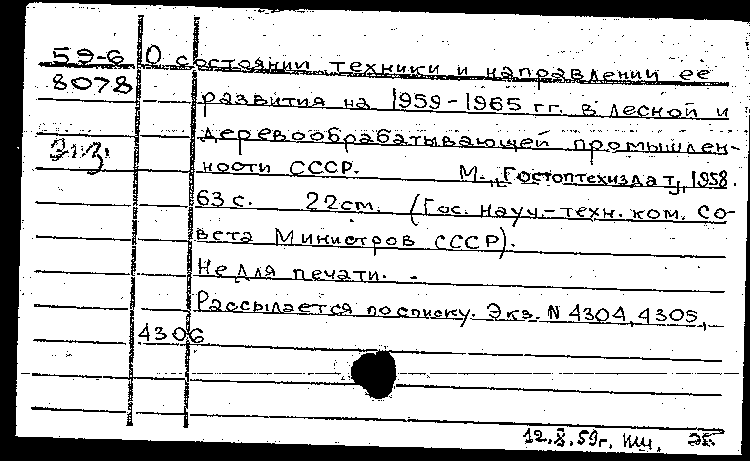 59-6 О состоянии техники и направлении её
8078 развития на 1959-1965 гг. в лесной и
деревообрабатывающей промышлен-
ности СССР. М., „Гостоптехиздат", 1958.
63 с. 22см. (Гос. науч.-техн. ком. Со-
вета Министров СССР).
Не для печати.
Рассылается по списку. Экз. N 4304, 4305,
4306
12.X.59г.